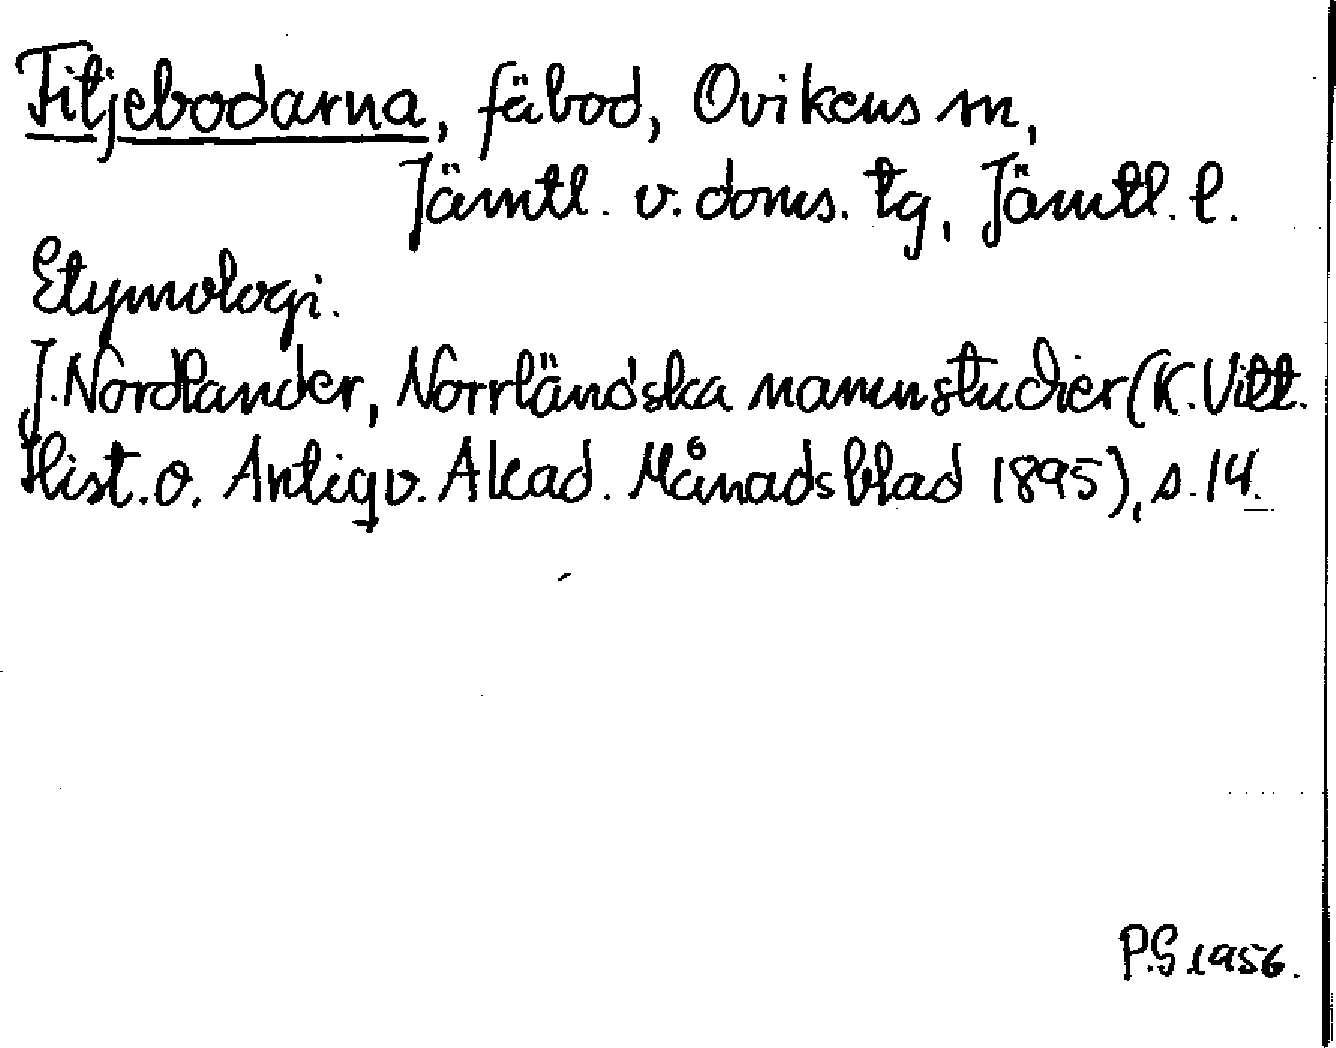 Fitjebodarna, fäbod, Ovikens sn,
Jämtl. v. doms. tg, Jämtl. l.
Etymologi.
J. Nordlander, Norrländska namnstudier (K. Vitt.
Hist. o. Antiqv. Akad. Månadsblad 1895), s. 14.
P.S 1956.